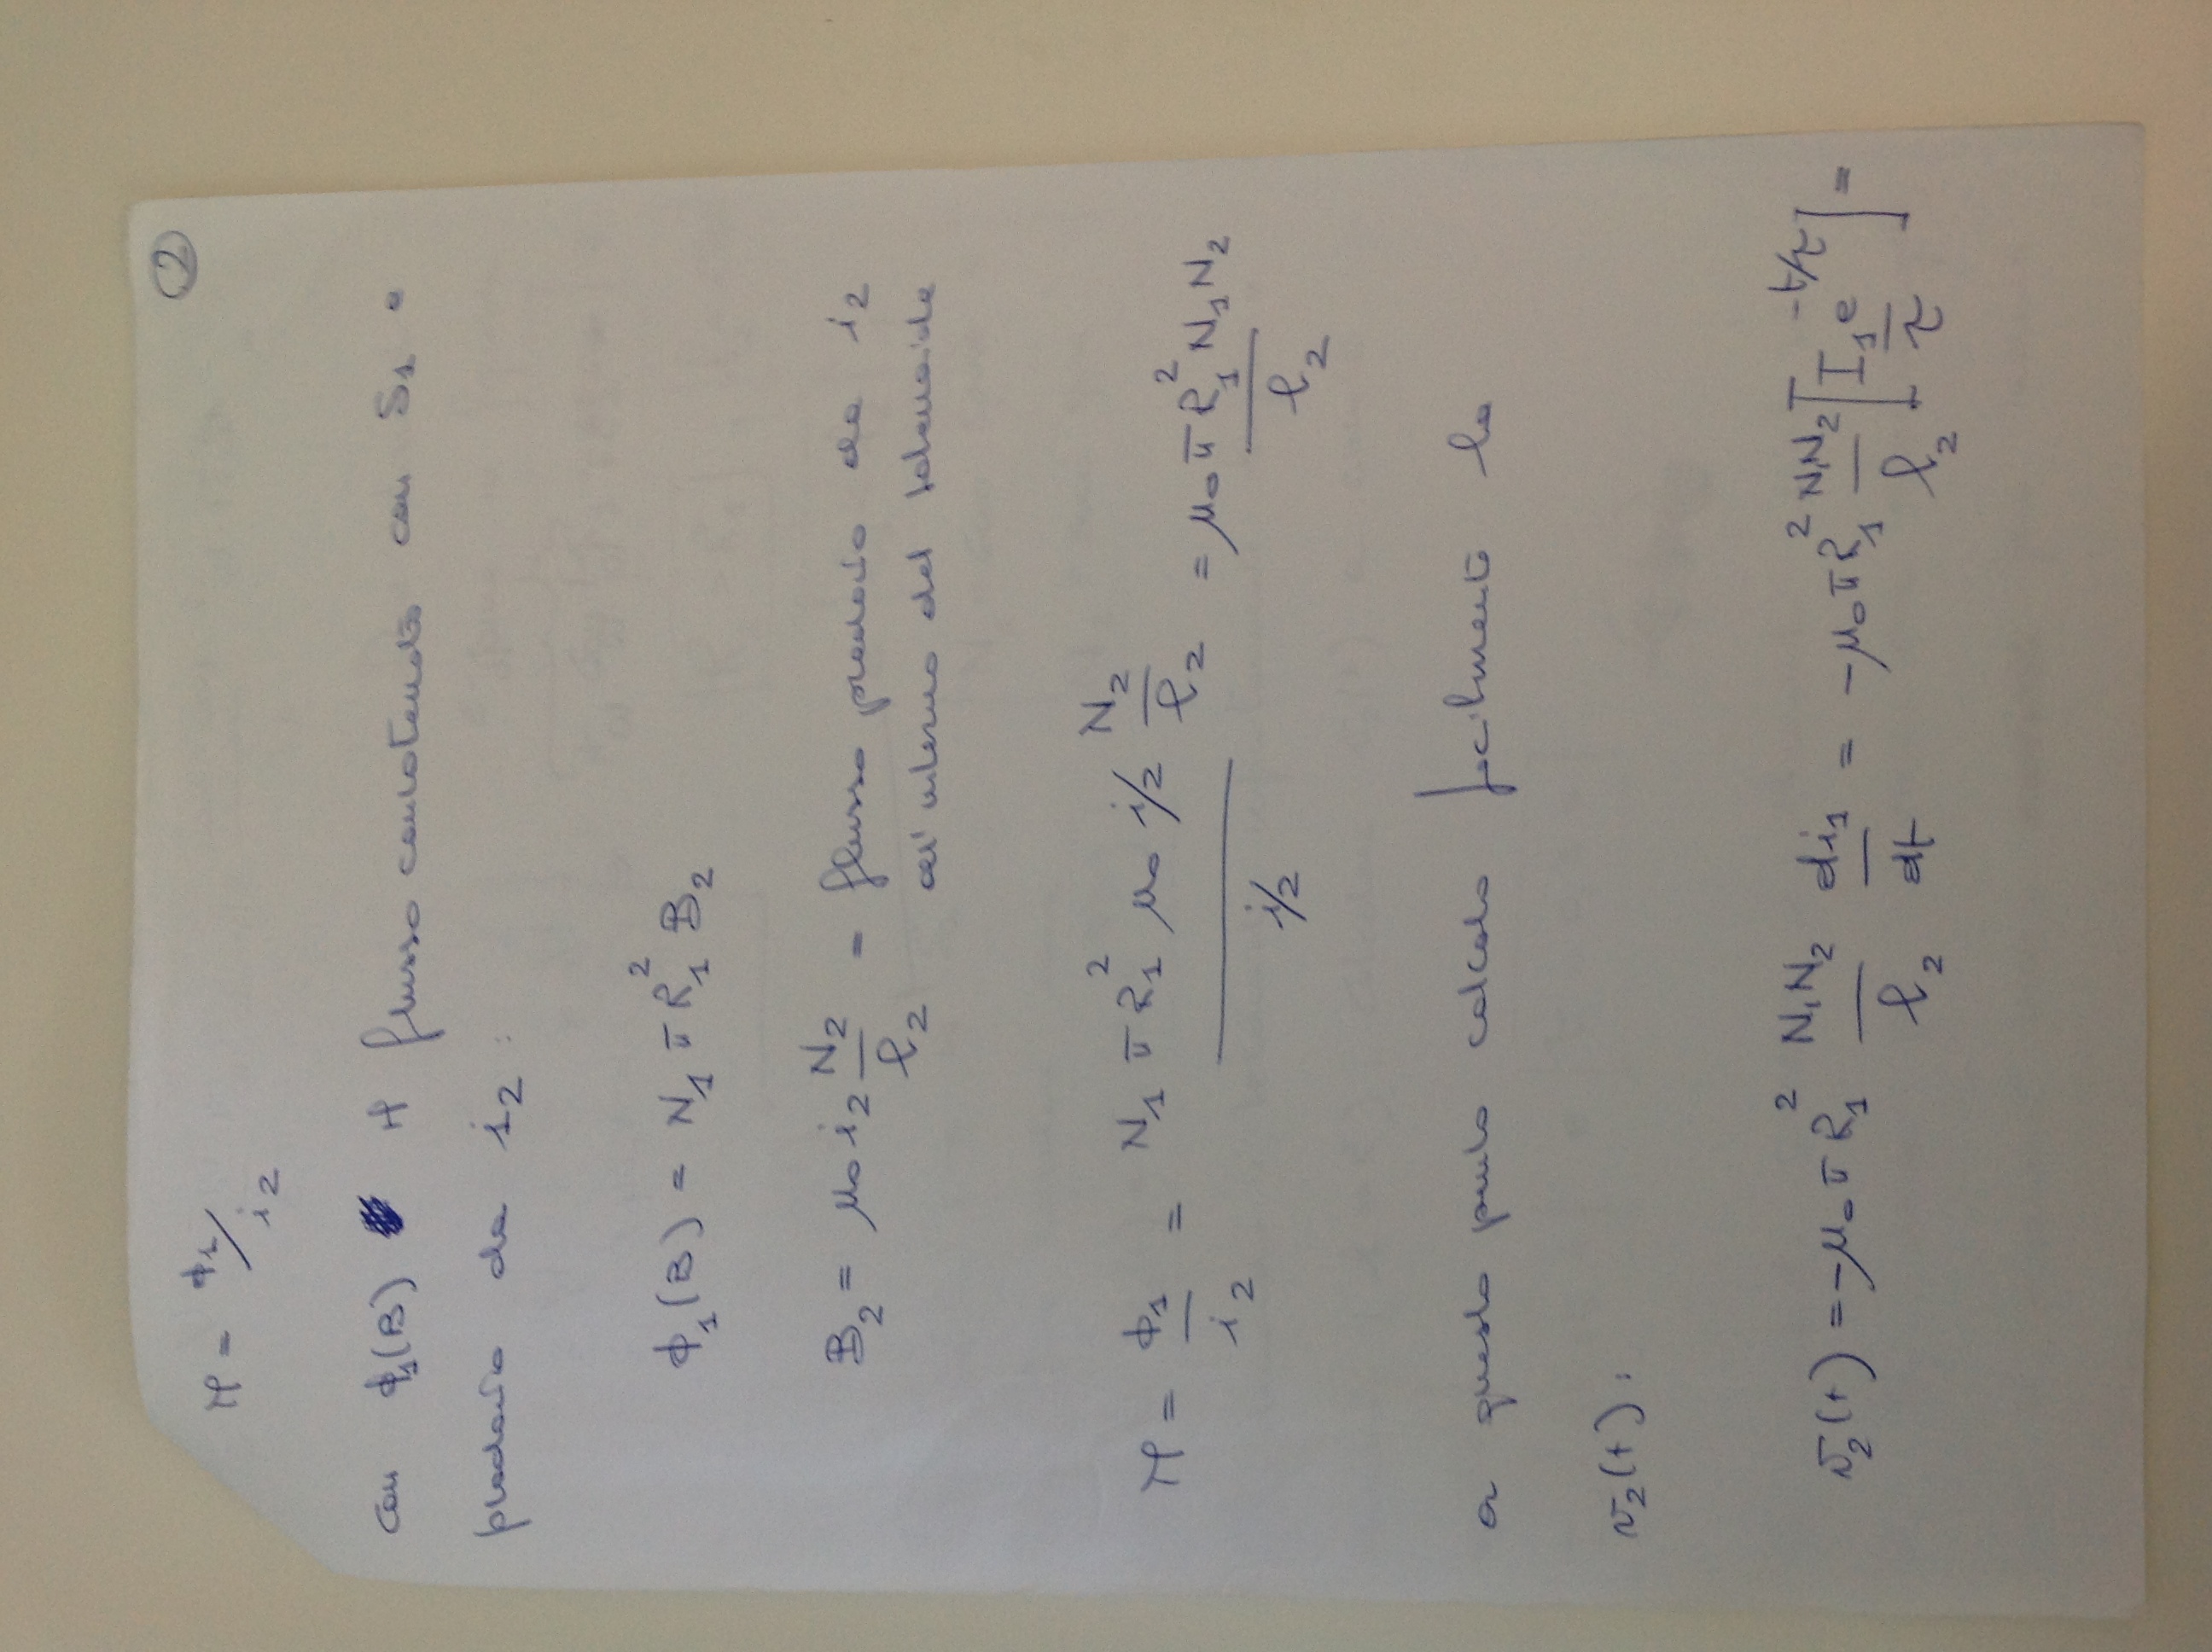 2
M = ϕ1/i2
con ϕ1(B) il flusso concatenato con S1 e
prodotto da i2:
ϕ1(B) = N1 π R1² B2
B2 = μ0 i2 N2/ℓ2 = flusso prodotto da i2
all'interno del solenoide
M = ϕ1/i2 = N1 π R1² μ0 i2 N2/ℓ2 / i2 = μ0 π R1² N1 N2 / ℓ2
a questo punto calcolo facilmente la
v2(t):
v2(t) = -μ0 π R1² N1N2/ℓ2 di1/dt = -μ0 π R1² N1N2/ℓ2 [I1 e^(-t/τ) / τ] =